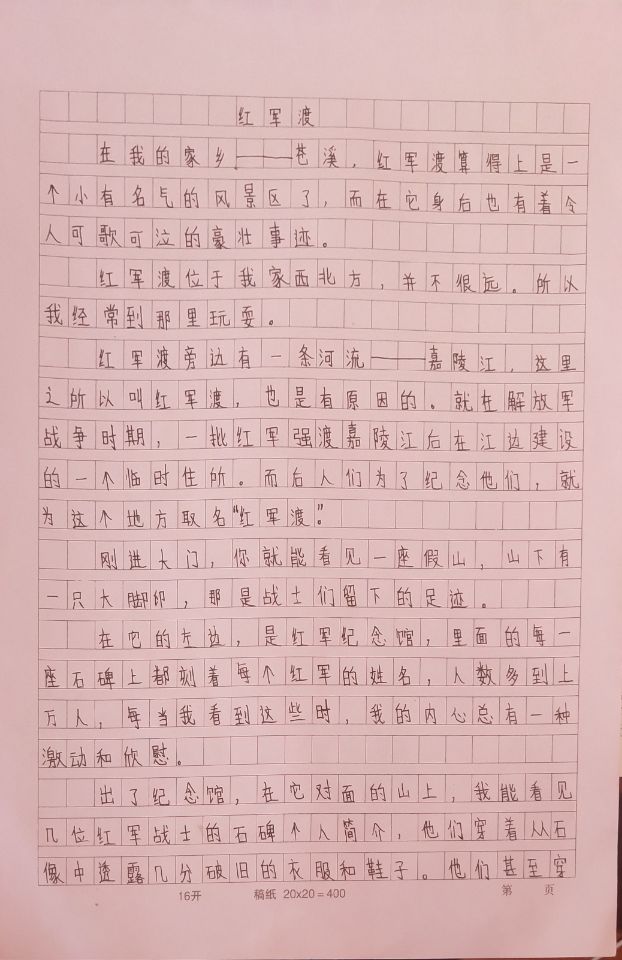 红军渡
在我的家乡——苍溪，红军渡算得上是一
个小有名气的风景区了，而在它身后也有着令
人可歌可泣的豪壮事迹。
红军渡位于我家西北方，并不很远。所以
我经常到那里玩耍。
红军渡旁边有一条河流——嘉陵江，这里
之所以叫红军渡，也是有原因的。就在解放军
战争时期，一批红军强渡嘉陵江后在江边建设
的一个临时住所。而后人们为了纪念他们，就
为这个地方取名“红军渡”。
刚进大门，你就能看见一座假山，山下有
一只大脚印，那是战士们留下的足迹。
在它的左边，是红军纪念馆，里面的每一
座石碑上都刻着每个红军的姓名，人数多到上
万人，每当我看到这些时，我的内心总有一种
激动和欣慰。
出了纪念馆，在它对面的山上，我能看见
几位红军战士的石碑个人简介，他们穿着从石
像中透露几分破旧的衣服和鞋子。他们甚至穿
16开 稿纸 20x20=400 第 页